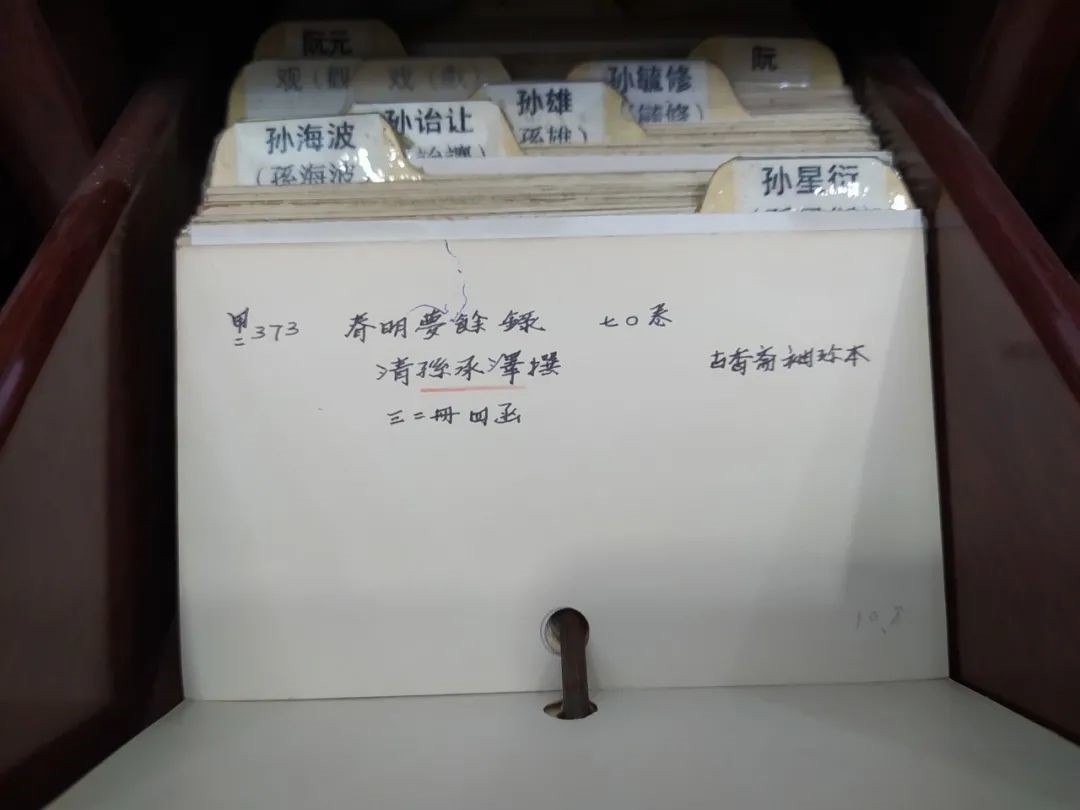 阮元
阮
观（觀
戏（戲
孙毓修
毓修）
孙雄
（孫雄）
孙诒让
詒讓）
孙海波
（孫海波
孙星衍
甲二373 春明夢餘錄 七〇卷
清孫承澤撰 古香斋袖珍本
三二冊四函